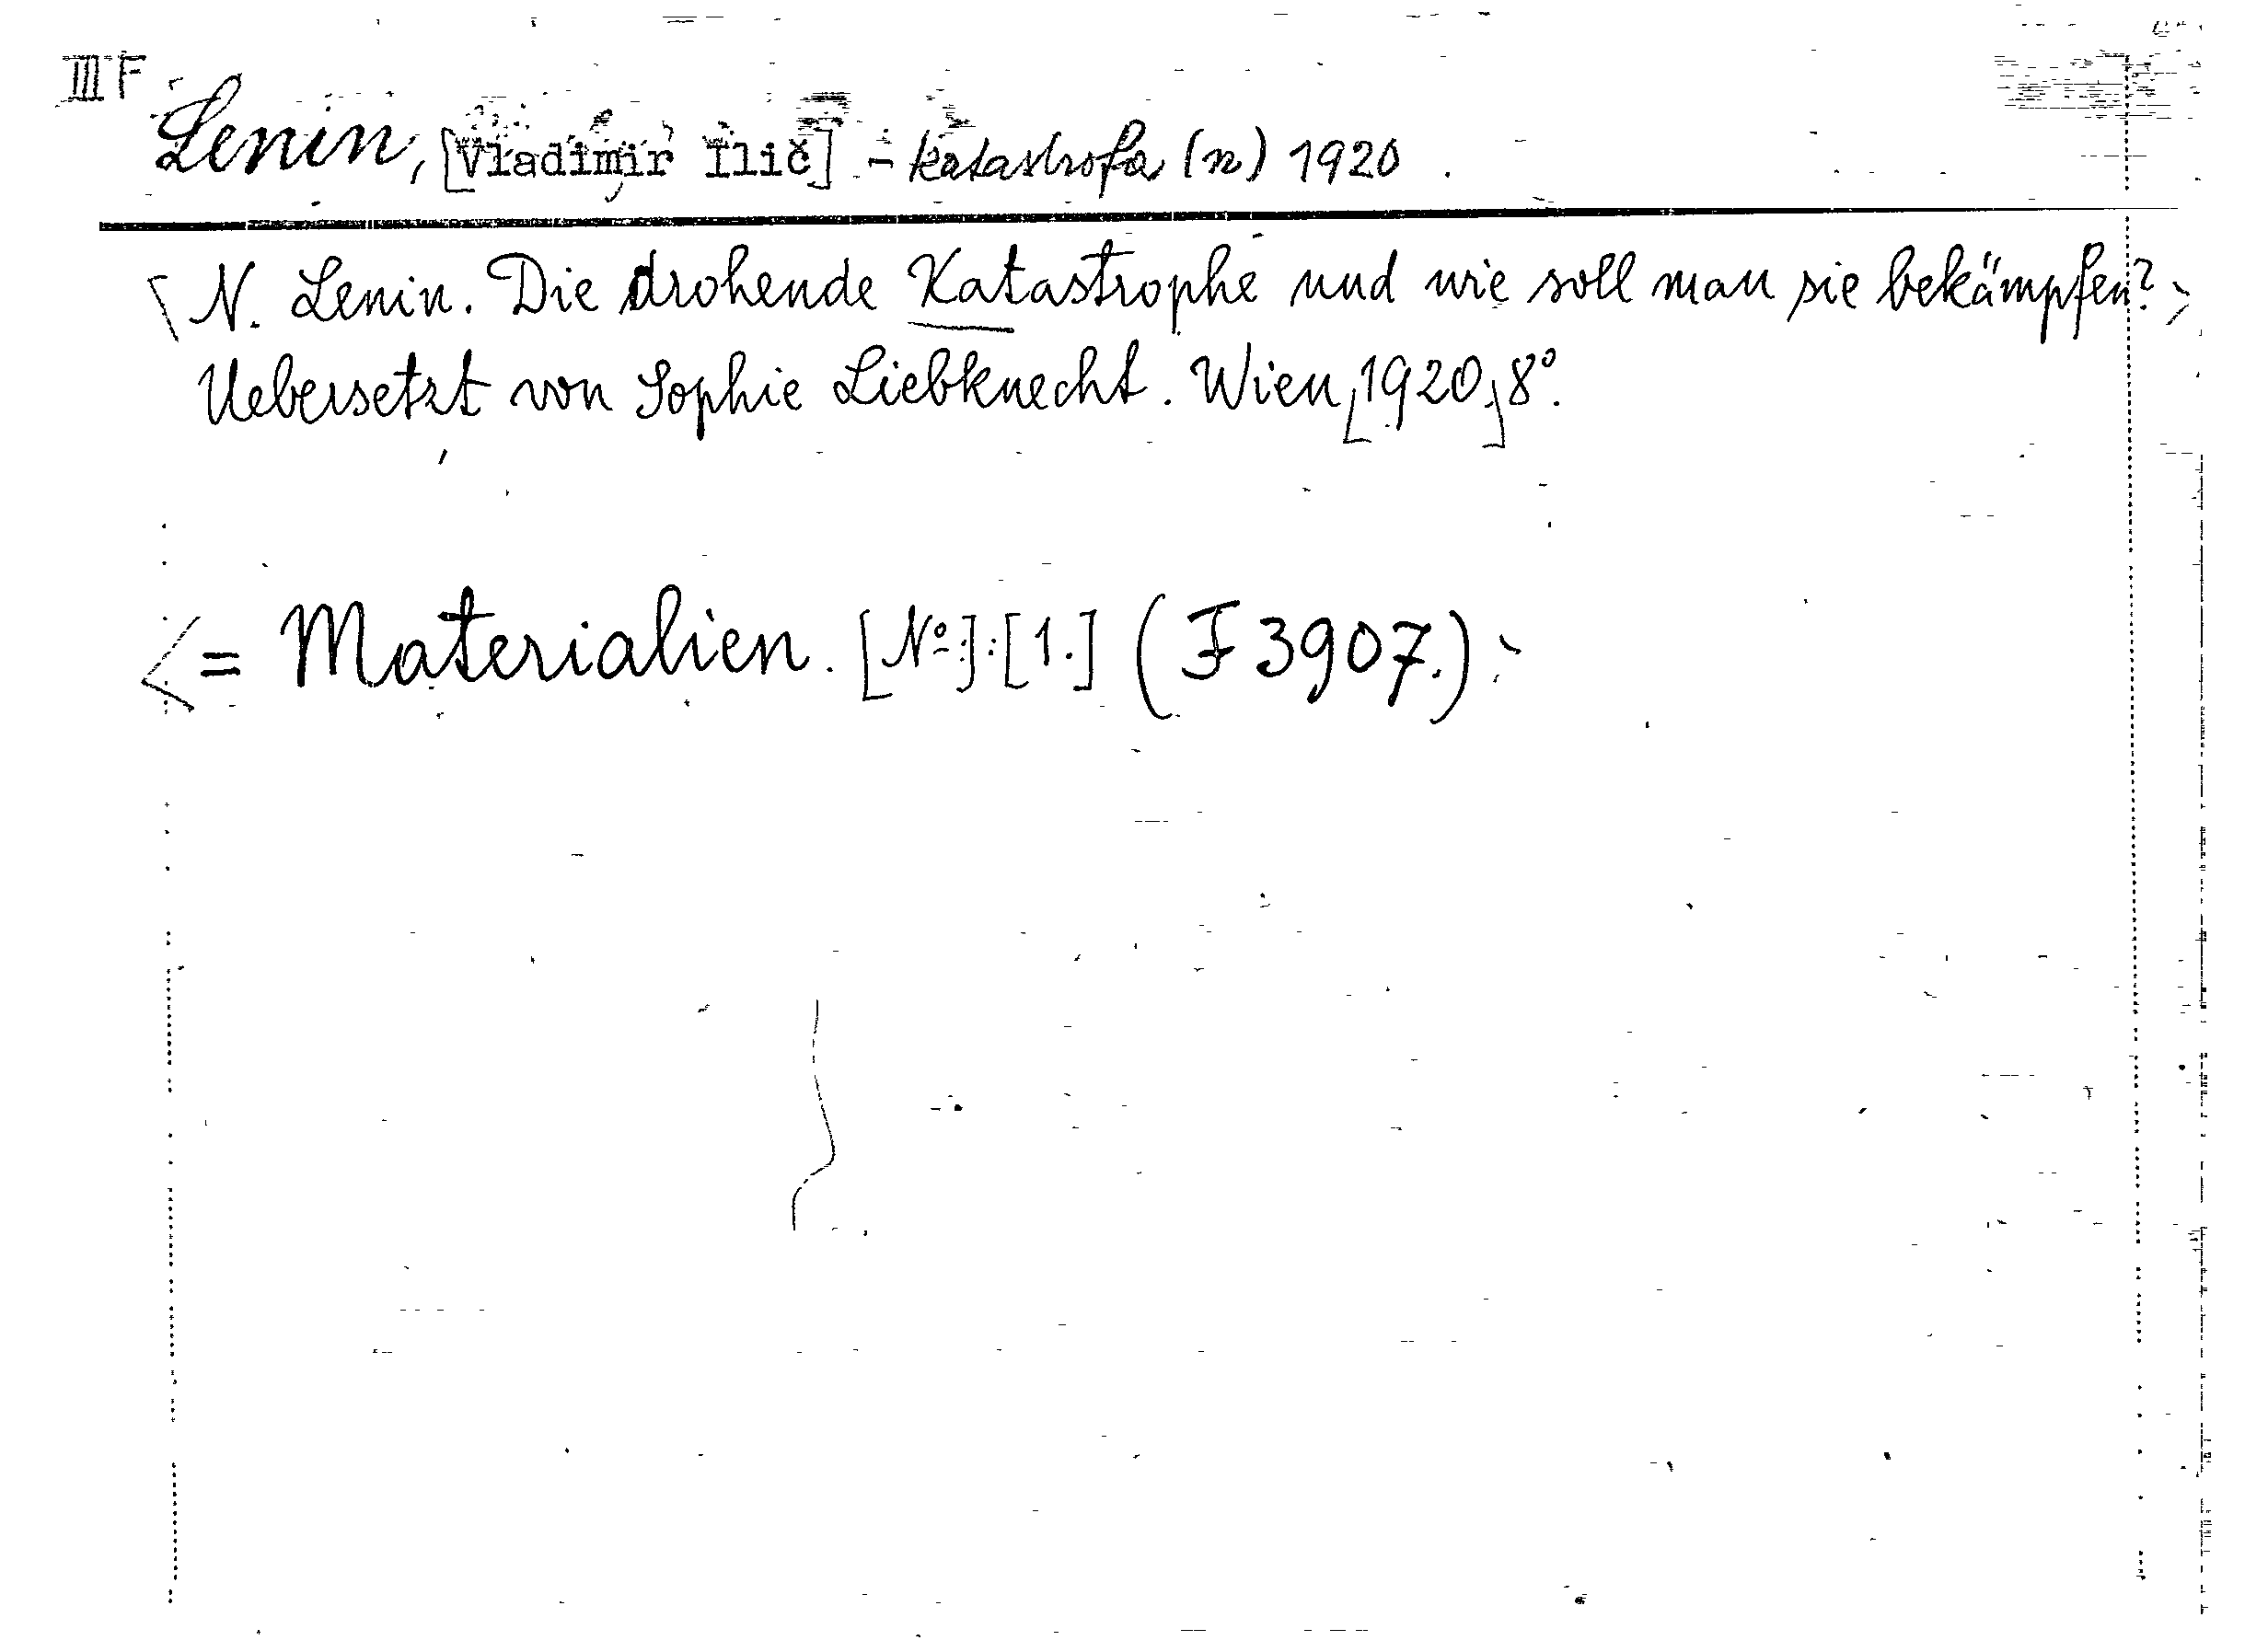 III F
Lenin, [Vladimir Ilič] - katastrofa (n) 1920
N. Lenin. Die drohende Katastrophe und wie soll man sie bekämpfen?>
Uebersetzt von Sophie Liebknecht. Wien [1920] 8°.
<= Materialien. [№.]: [1.] (F 3907.)>